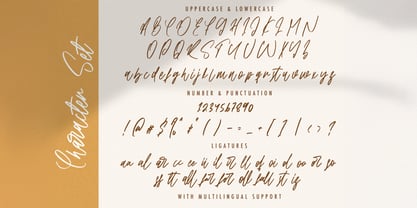 Character Set
UPPERCASE & LOWERCASE
A B C D E F G H I J K L M N
O P Q R S T U V W X Y Z
a b c d e f g h i j k l m n o p q r s t u v w x y z
NUMBER & PUNCTUATION
1 2 3 4 5 6 7 8 9 0
! @ # $ % ^ * ( ) - = _ + [ ] ( ) ?
LIGATURES
WITH MULTILINGUAL SUPPORT